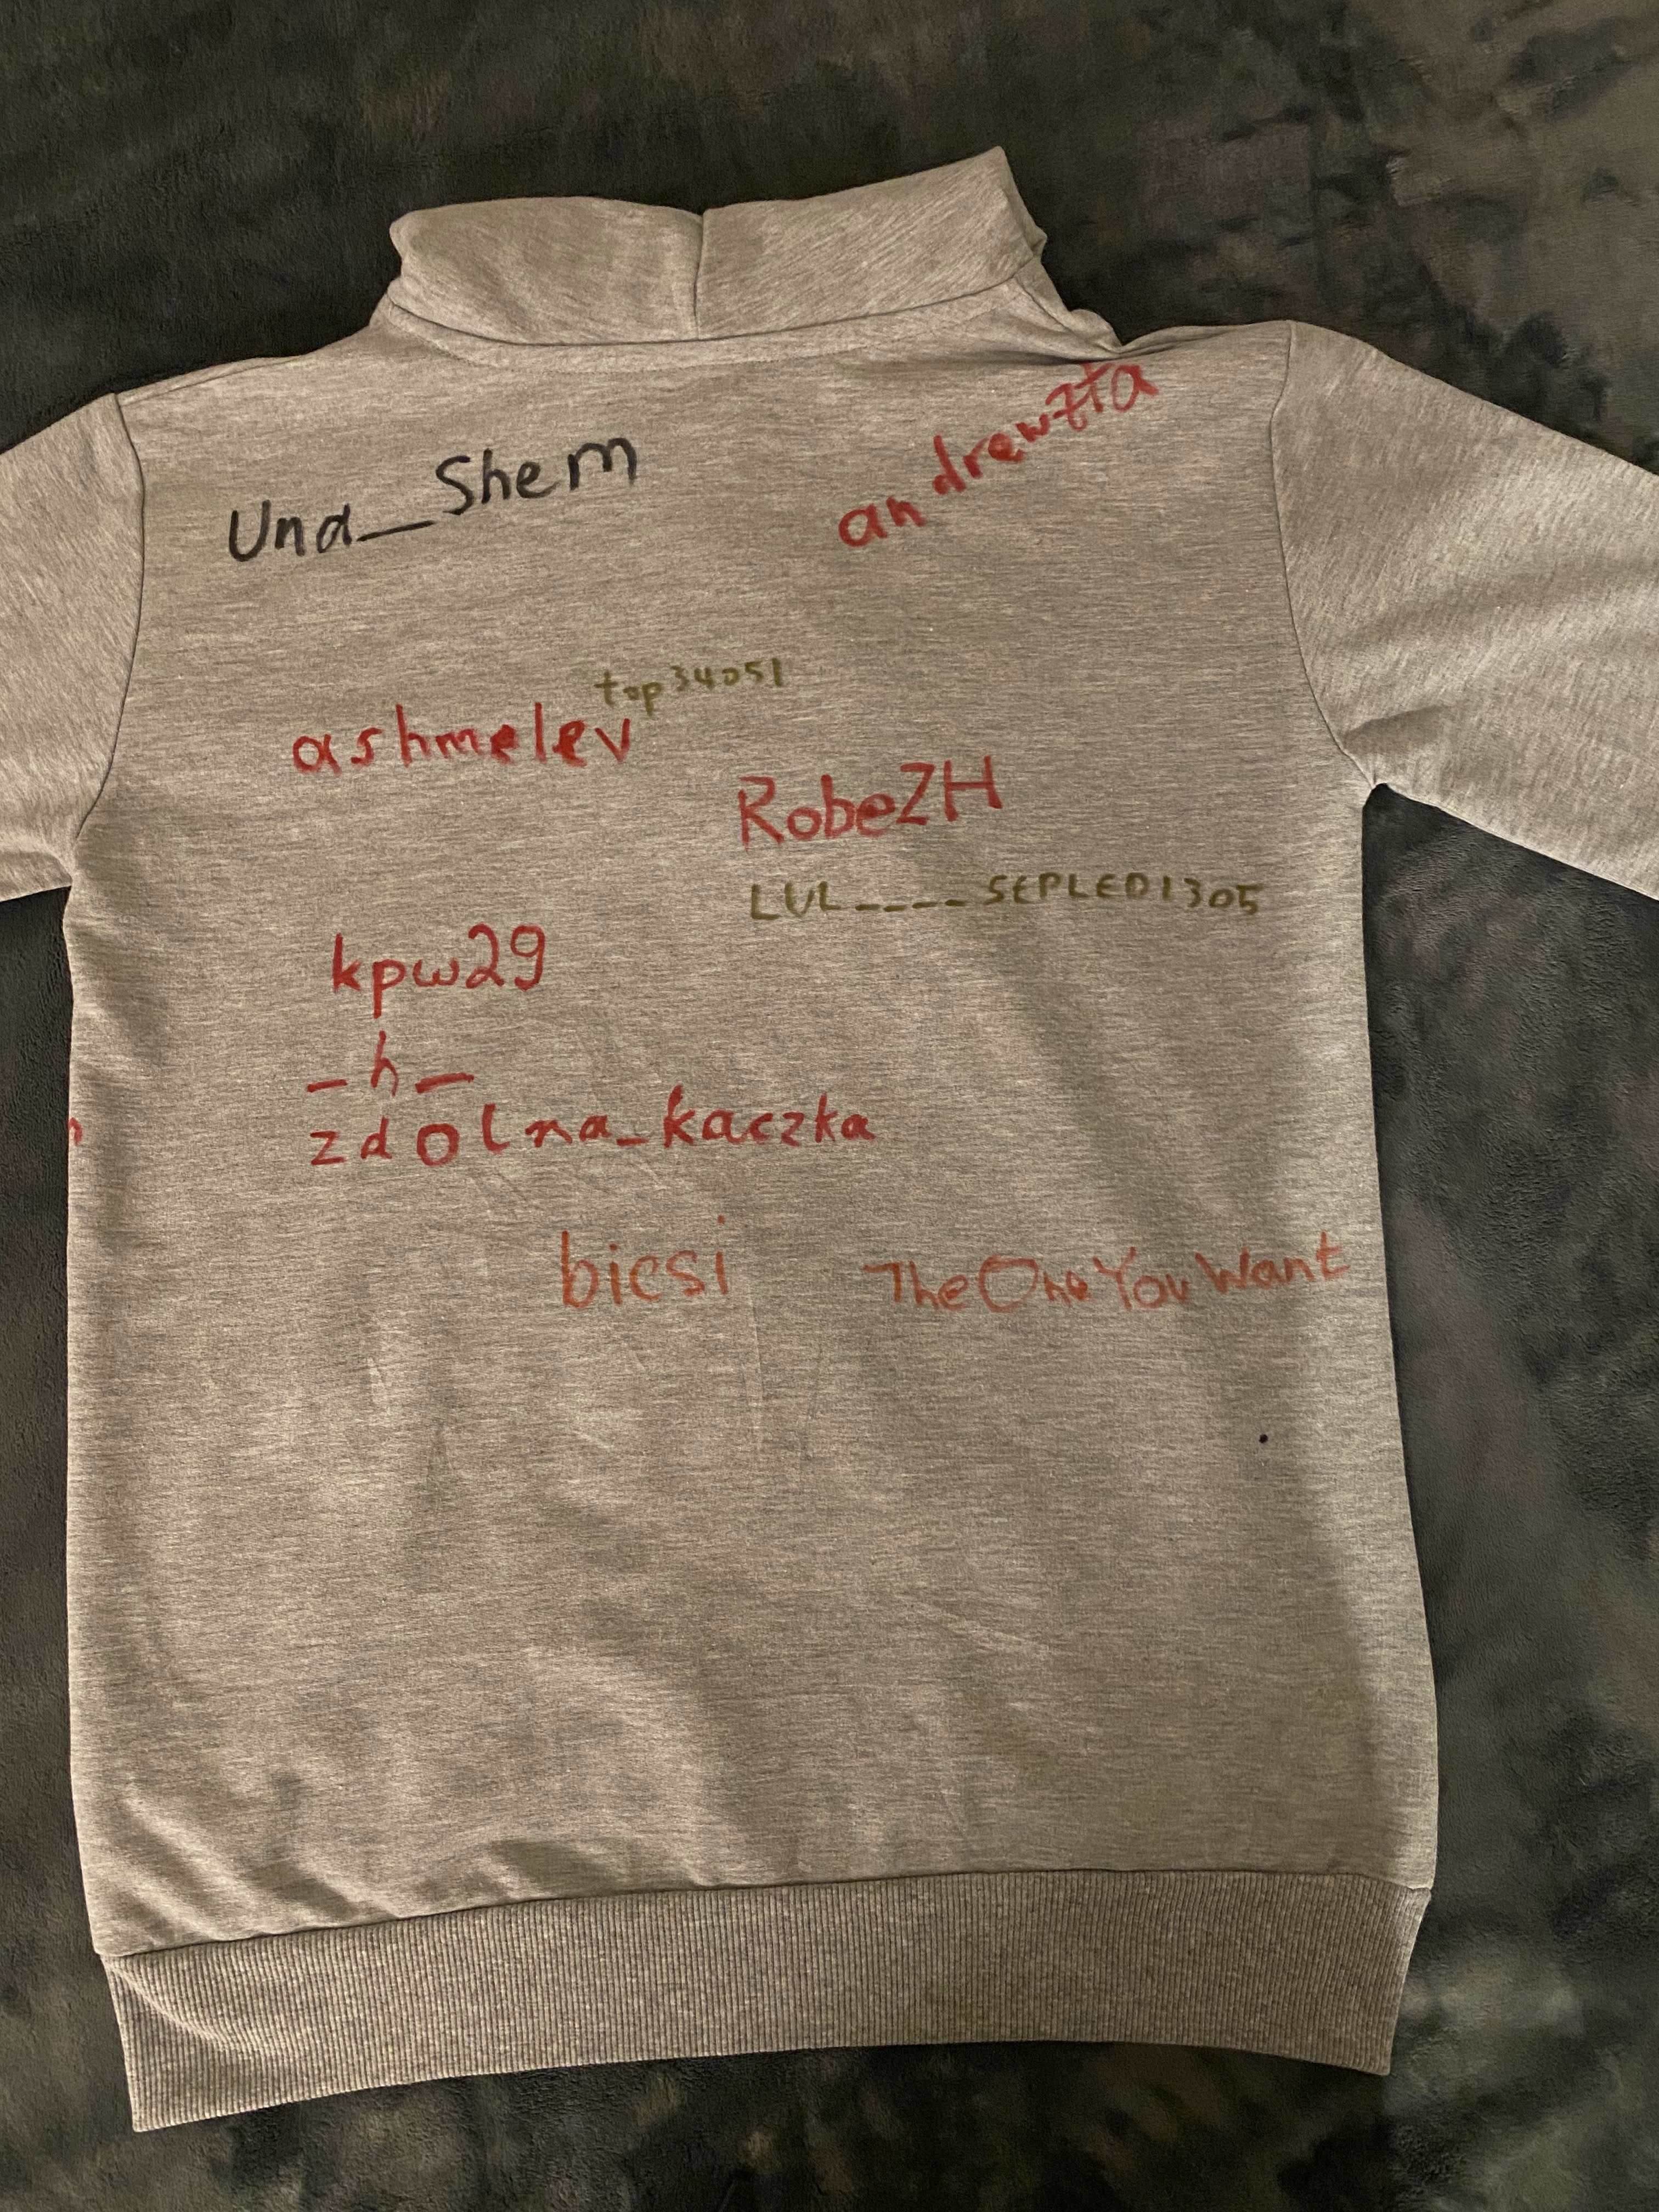 Una_Shem
andrewzta
top34051
ashmelev
RobeZH
LUL____SEPLED1305
kpw29
_h_
zdolna_kaczka
bicsi
TheOneYouWant